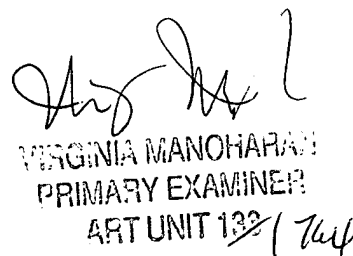 VIRGINIA MANOHARAN
PRIMARY EXAMINER
ART UNIT 133 / 1764